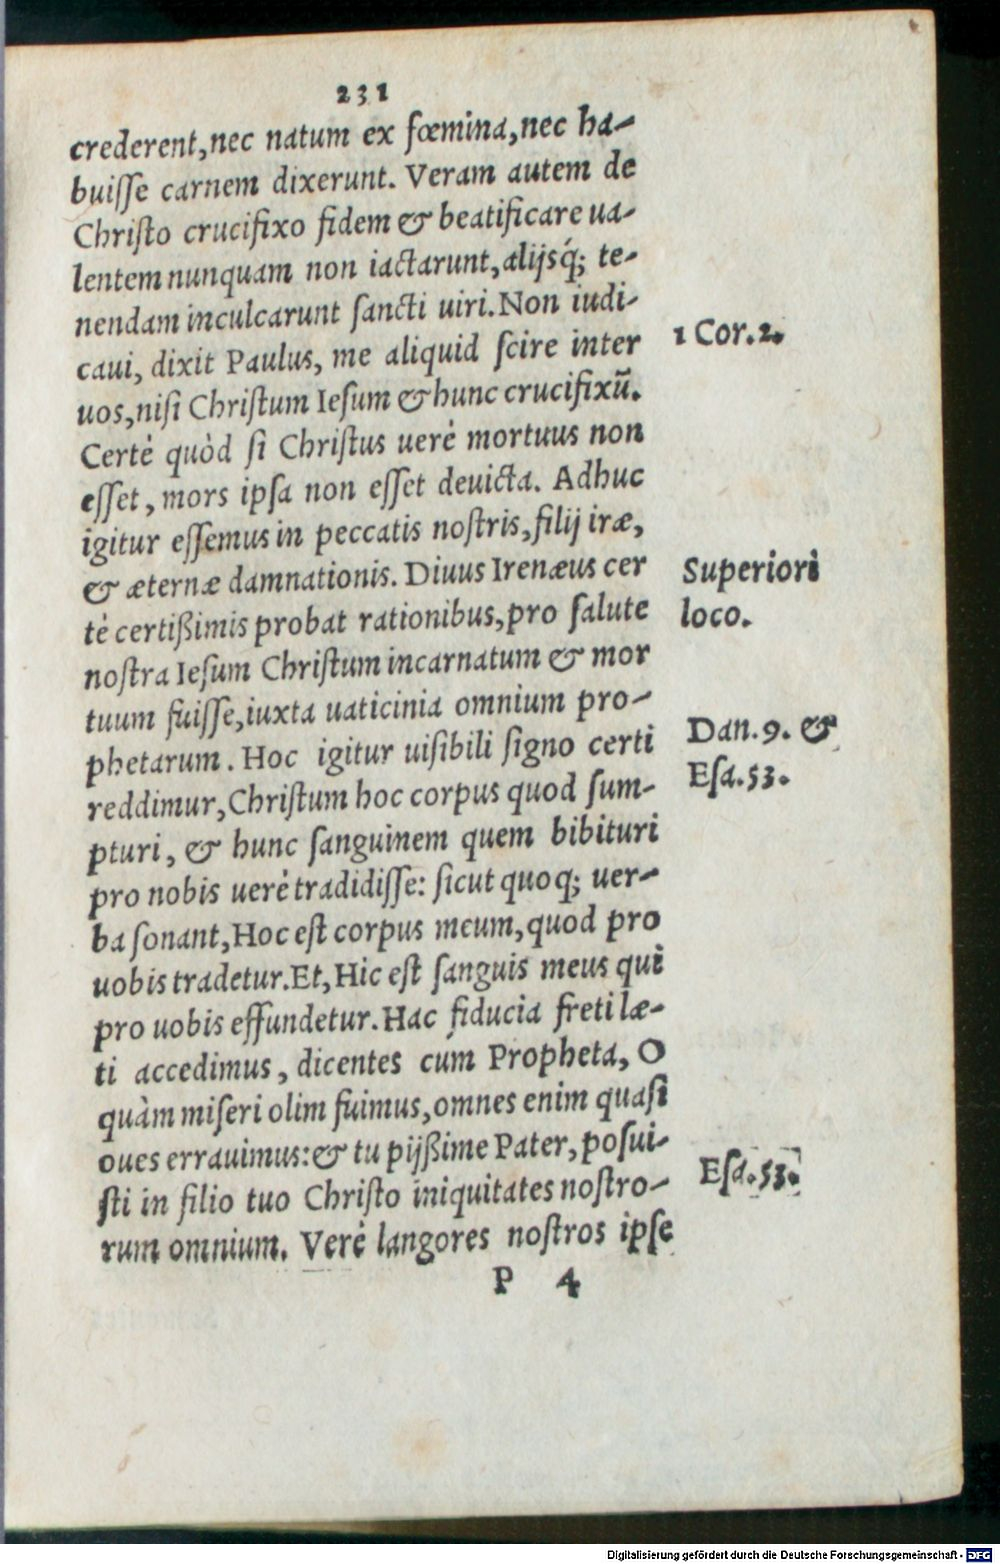 231
crederent, nec natum ex fœmina, nec ha-
buiſſe carnem dixerunt. Veram autem de
Chriſto crucifixo fidem & beatificare ua-
lentem nunquam non iactarunt, alijsq́; te-
nendam inculcarunt ſancti uiri. Non iudi-
caui, dixit Paulus, me aliquid ſcire inter
uos, niſi Chriſtum Ieſum & hunc crucifixū.
Certè quòd ſi Chriſtus uerè mortuus non
eſſet, mors ipſa non eſſet deuicta. Adhuc
igitur eſſemus in peccatis noſtris, filij iræ,
& æternæ damnationis. Diuus Irenæus cer
tè certißimis probat rationibus, pro ſalute
noſtra Ieſum Chriſtum incarnatum & mor
tuum fuiſſe, iuxta uaticinia omnium pro-
phetarum. Hoc igitur uiſibili ſigno certi
reddimur, Chriſtum hoc corpus quod ſum-
pturi, & hunc ſanguinem quem bibituri
pro nobis uerè tradidiſſe: ſicut quoq; uer-
ba ſonant, Hoc eſt corpus meum, quod pro
uobis tradetur. Et, Hic eſt ſanguis meus qui
pro uobis effundetur. Hac fiducia freti læ-
ti accedimus, dicentes cúm Propheta, O
quàm miſeri olim fuimus, omnes enim quaſi
oues errauimus: & tu pijßime Pater, poſui-
ſti in filio tuo Chriſto iniquitates noſtro-
rum omnium. Verè langores noſtros ipſe
P 4
1 Cor. 2.
Superiori
loco.
Dan. 9. &
Eſa. 53.
Eſa. 53.
Digitalisierung gefördert durch die Deutsche Forschungsgemeinschaft - DFG